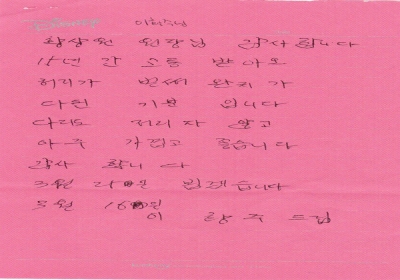 이희주님
황상원 원장님 감사합니다
15년 간 고통 받아오
허리가 벌써 완치가
다된 기분 입니다
다리도 저리지 않고
아주 가볍고 좋습니다
감사 합니다
3월 21일 뵙겠습니다
5월 16일
이 드림